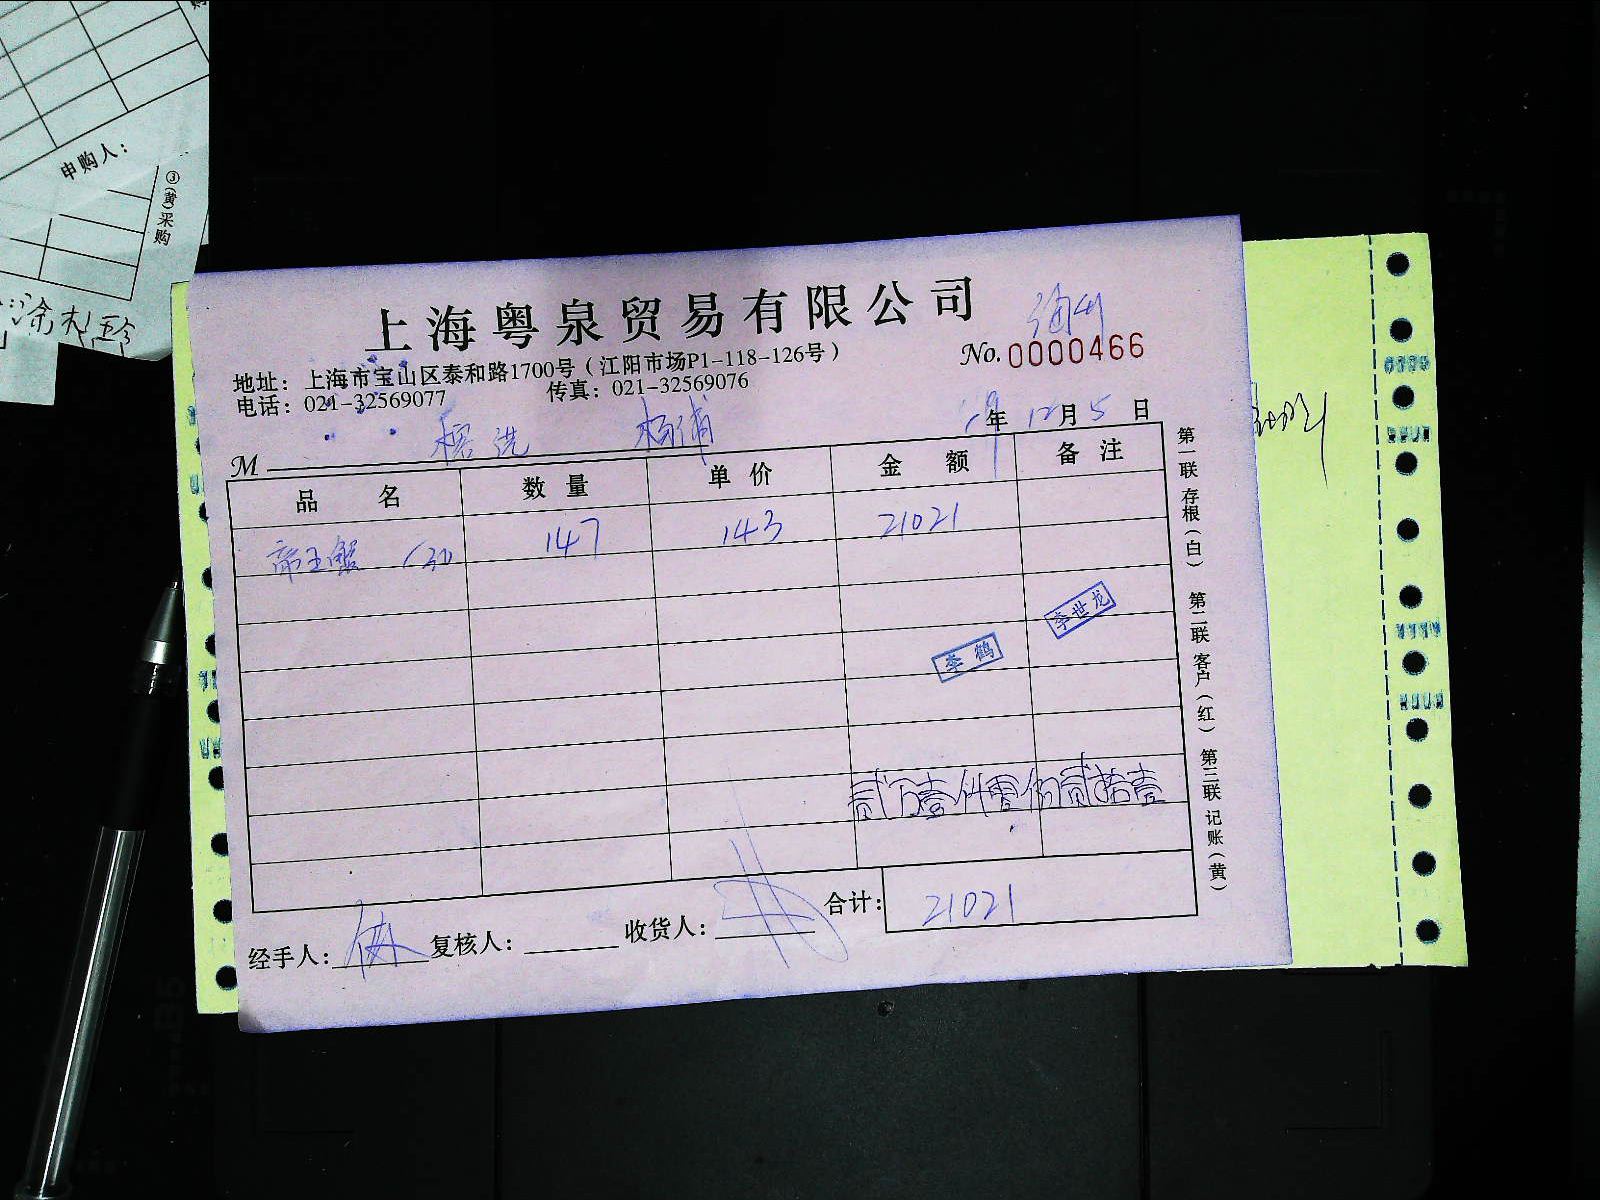 申购人：
③(黄)采购
上海粤泉贸易有限公司
No. 0000466
地址：上海市宝山区泰和路1700号（江阳市场P1-118-126号）
电话：021-32569077 传真：021-32569076
杨浦
年 12月 5 日
M
品名 数量 单价 金额 备注
帝王蟹 147 143 21021
李世龙
李鹤
贰万壹仟零佰贰拾壹
合计： 21021
经手人： 复核人： 收货人：
第一联 存根（白） 第二联 客户（红） 第三联 记账（黄）